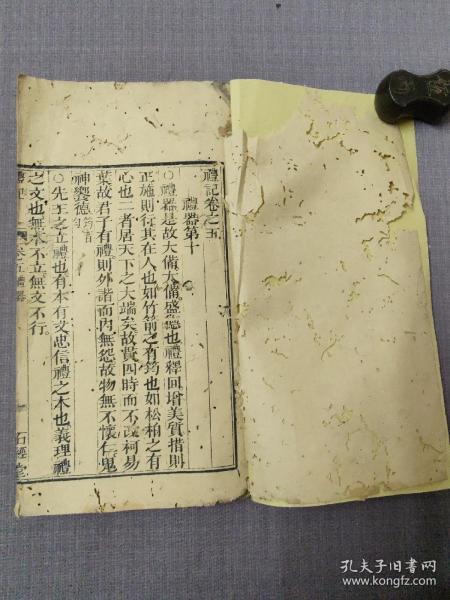 禮記卷之五
禮器第十
○禮器是故大備大備盛德也禮釋回增美質措則
正施則行其在人也如竹箭之有筠也如松柏之有
心也二者居天下之大端矣故貫四時而不改柯易
葉故君子有禮則外諧而內無怨故物無不懷仁鬼
神饗德
○先王之立禮也有本有文忠信禮之本也義理禮
之文也無本不立無文不行
石經堂
孔夫子旧书网
www.kongfz.com